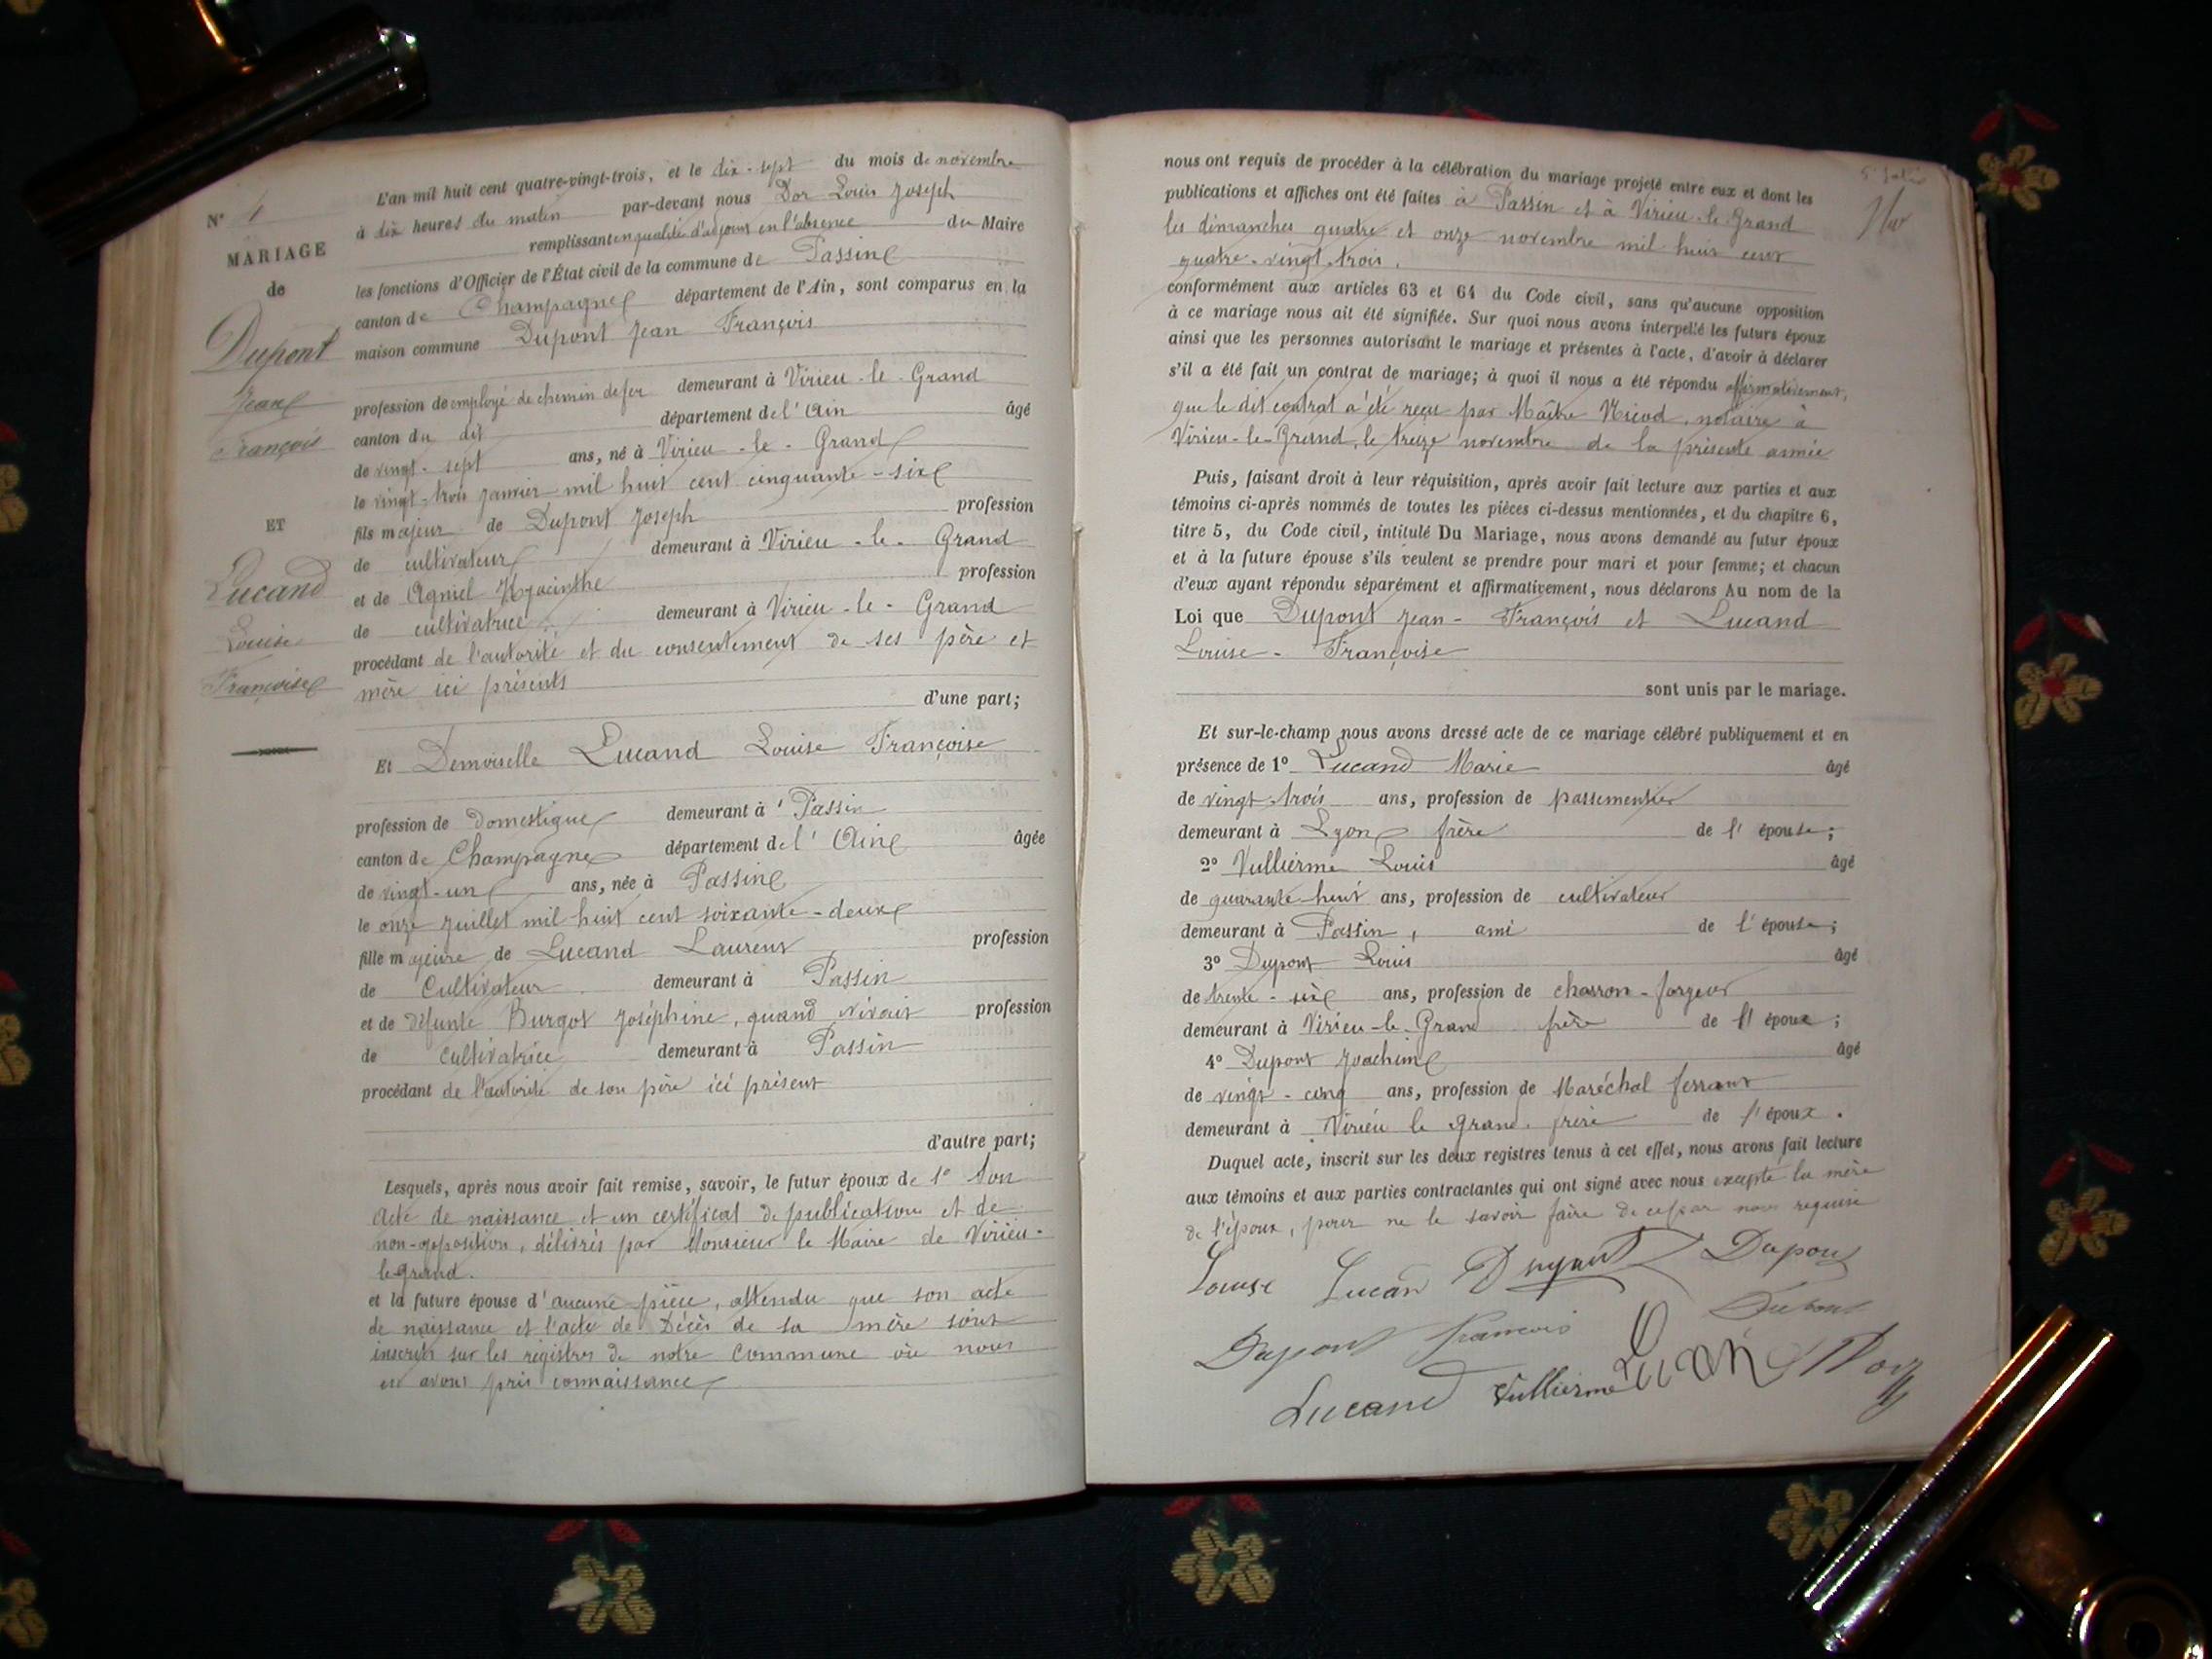 L'an mil huit cent quatre-vingt-trois, et le dix-sept du mois de novembre
à dix heures du matin par-devant nous Dor Louis Joseph
remplissant en qualité d'adjoint en l'absence du Maire
les fonctions d'Officier de l'État civil de la commune de Passin
canton de Champagne département de l'Ain, sont comparus en la
maison commune Dupont Jean François
profession de employé de chemin de fer demeurant à Virieu-le-Grand
canton du dit département de l'Ain âgé
de vingt-sept ans, né à Virieu-le-Grand
le vingt-trois janvier mil huit cent cinquante-six
fils majeur de Dupont Joseph profession
de cultivateur demeurant à Virieu-le-Grand
et de Agniel Hyacinthe profession
de cultivatrice demeurant à Virieu-le-Grand
procédant de l'autorité et du consentement de ses père et
mère ici présents
d'une part;
Et Demoiselle Lucand Louise Françoise
profession de domestique demeurant à Passin
canton de Champagne département de l'Ain âgée
de vingt-un ans, née à Passin
le onze juillet mil huit cent soixante-deux
fille majeure de Lucand Laurent profession
de Cultivateur demeurant à Passin
et de défunte Burgot Joséphine, quand vivait profession
de Cultivatrice demeurant à Passin
procédant de l'autorité de son père ici présent
d'autre part;
Lesquels, après nous avoir fait remise, savoir, le futur époux de 1º Son
acte de naissance et un certificat de publication et de
non-opposition, délivrés par Monsieur le Maire de Virieu-
le Grand.
et la future épouse d'aucune pièce, attendu que son acte
de naissance et l'acte de Décès de sa mère sont
inscrits sur les registres de notre Commune où nous
en avons pris connaissance
Nº
MARIAGE
de
Dupont
Jean
François
ET
Lucand
Louise
Françoise
nous ont requis de procéder à la célébration du mariage projeté entre eux et dont les
publications et affiches ont été faites à Passin et à Virieu-le-Grand
les dimanches quatre et onze novembre mil huit cent
quatre-vingt-trois.
conformément aux articles 63 et 64 du Code civil, sans qu'aucune opposition
à ce mariage nous ait été signifiée. Sur quoi nous avons interpellé les futurs époux
ainsi que les personnes autorisant le mariage et présentes à l'acte, d'avoir à déclarer
s'il a été fait un contrat de mariage; à quoi il nous a été répondu affirmativement,
que le dit contrat a été reçu par Maître Nicod, notaire à
Virieu-le-Grand, le treize novembre de la présente année
Puis, faisant droit à leur réquisition, après avoir fait lecture aux parties et aux
témoins ci-après nommés de toutes les pièces ci-dessus mentionnées, et du chapitre 6,
titre 5, du Code civil, intitulé Du Mariage, nous avons demandé au futur époux
et à la future épouse s'ils veulent se prendre pour mari et pour femme; et chacun
d'eux ayant répondu séparément et affirmativement, nous déclarons Au nom de la
Loi que Dupont Jean-François et Lucand
Louise-Françoise
sont unis par le mariage.
Et sur-le-champ nous avons dressé acte de ce mariage célébré publiquement et en
présence de 1º Lucand Marie âgé
de vingt-trois ans, profession de passementier
demeurant à Lyon frère de l'épouse;
2º Vullierme Louis âgé
de quarante-huit ans, profession de cultivateur
demeurant à Passin, ami de l'épouse;
3º Dupont Louis âgé
de trente-six ans, profession de charron-forgeur
demeurant à Virieu-le-Grand frère de l'époux;
4º Dupont Joachim âgé
de vingt-cinq ans, profession de Maréchal ferrant
demeurant à Virieu le grand, frère de l'époux.
Duquel acte, inscrit sur les deux registres tenus à cet effet, nous avons fait lecture
aux témoins et aux parties contractantes qui ont signé avec nous excepté la mère
de l'époux, pour ne le savoir faire de ce par nous requise
Louise Lucan Dupont Dupont
Dupont François Dupont
Lucand Vullierme Lucand Dor